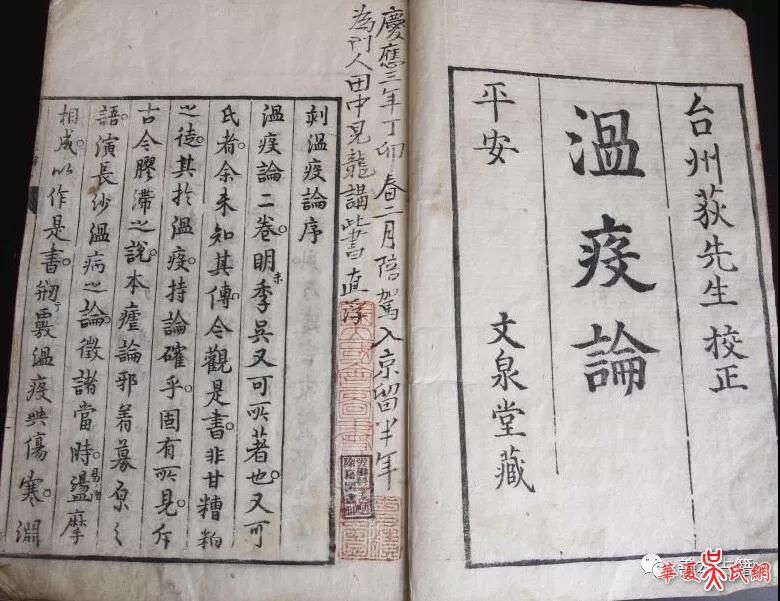 台州荻先生校正
溫疫論
平安
文泉堂藏
慶應三年丁卯春二月陪駕入京留半年
為門人田中見龍講此書 直浮
刻溫疫論序
溫疫論二卷明季吳又可所著也又可
氏者余未知其傳今觀是書非甘糟粕
之徒其於溫疫持論確乎固有所見斥
古今膠滯之說本瘧論邪着募原之
語演長沙溫病之論徵諸當時盪摩
相成以作是書剏覈溫疫與傷寒淵
華夏吳氏網